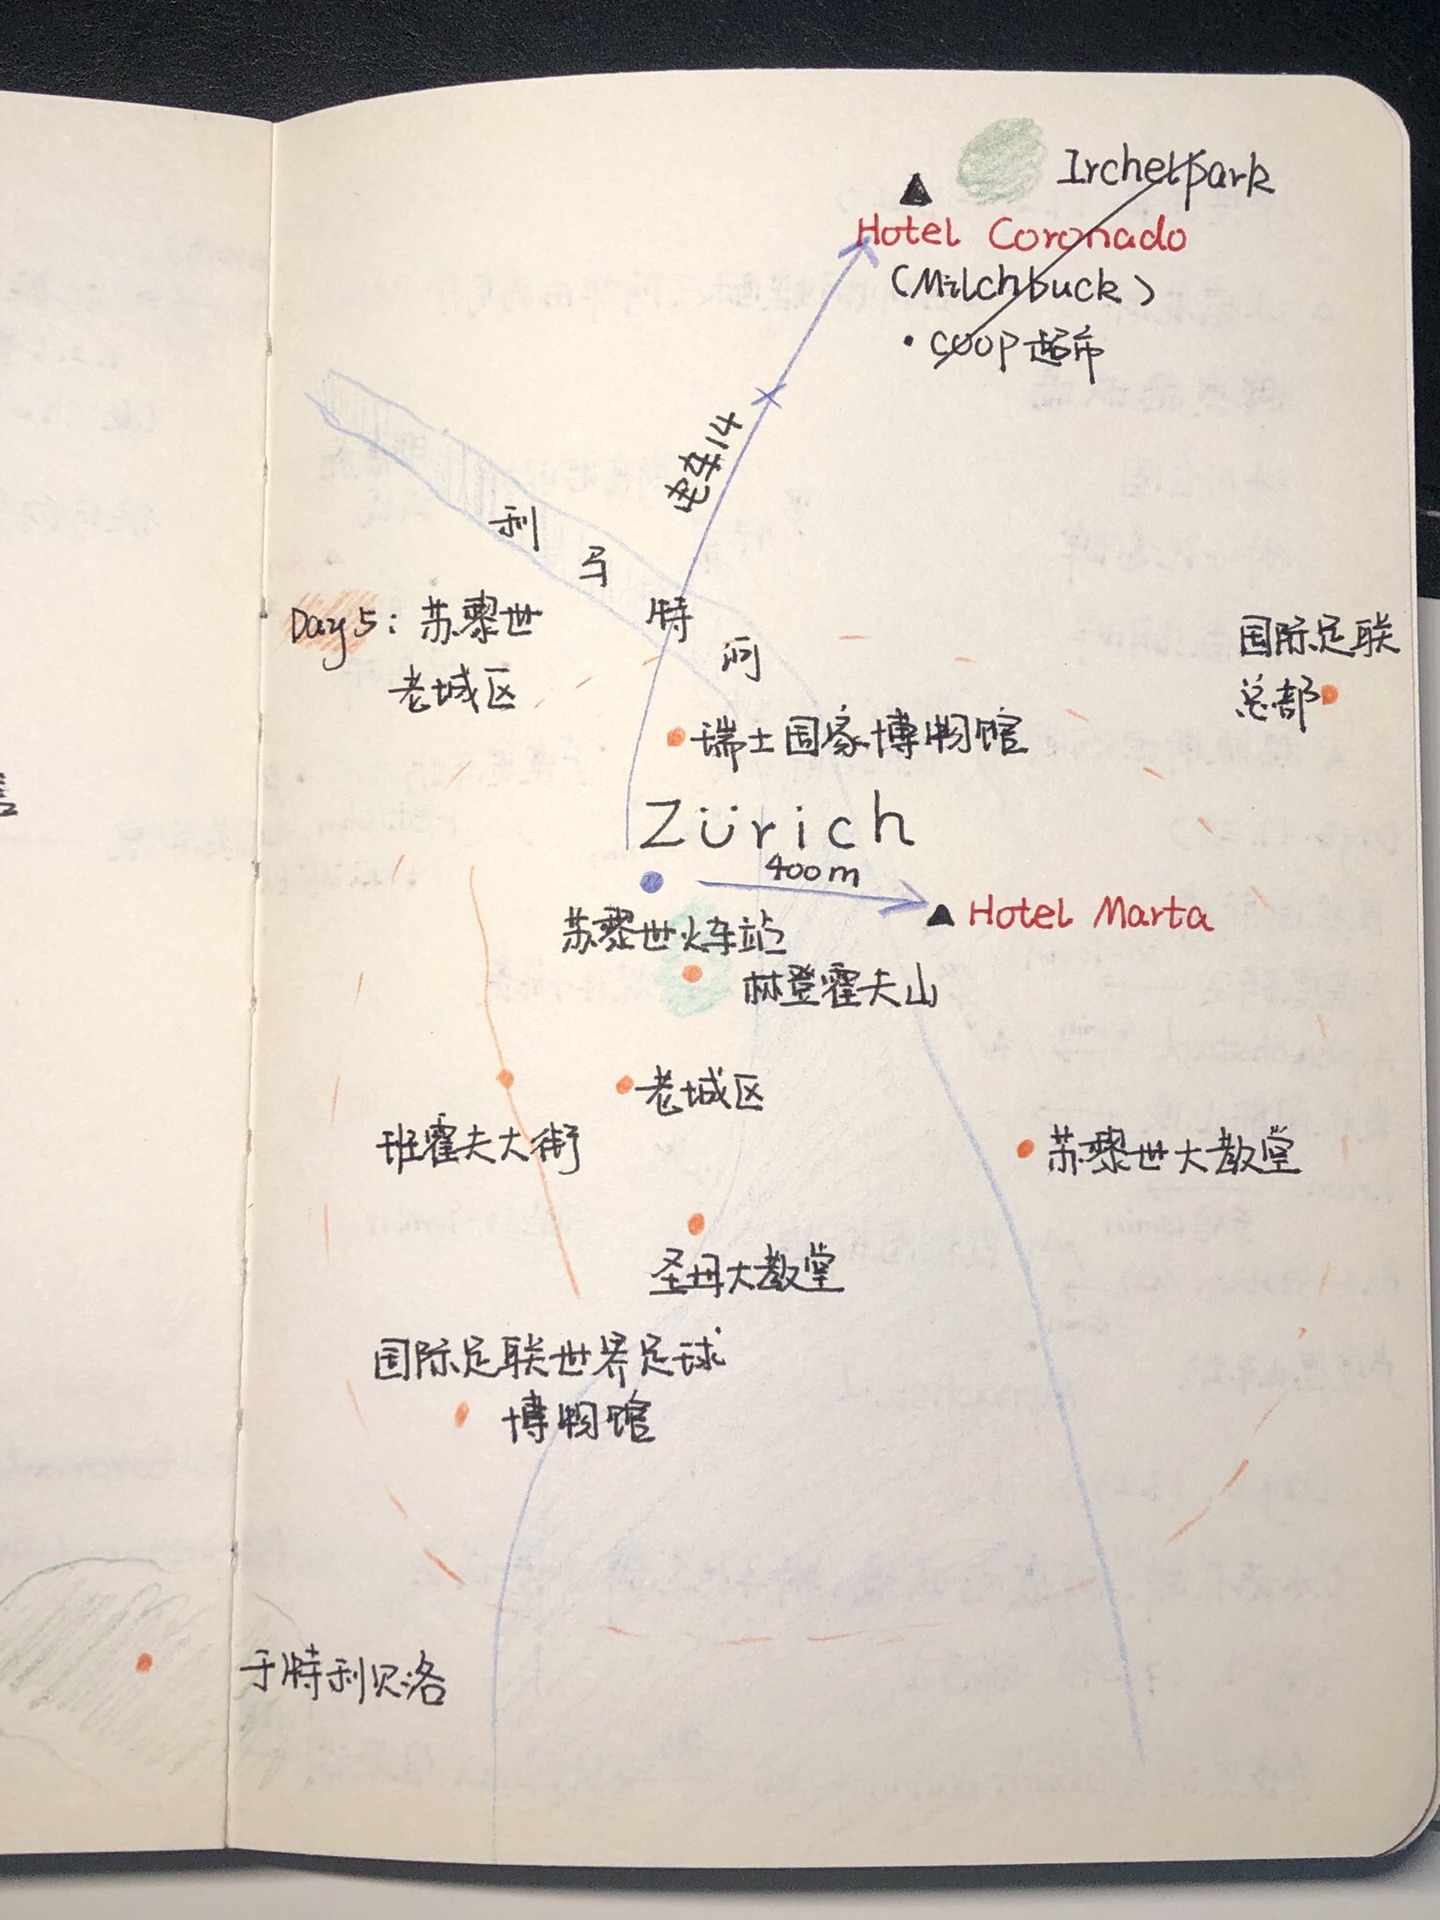 Irchelpark
Hotel Coronado
(Milchbuck)
• coop超市
电车14
利马特河
Day5: 苏黎世
老城区
国际足联
总部
瑞士国家博物馆
Zürich
400m
Hotel Marta
苏黎世火车站
林登霍夫山
老城区
班霍夫大街
苏黎世大教堂
圣母大教堂
国际足联世界足球
博物馆
于特利贝洛